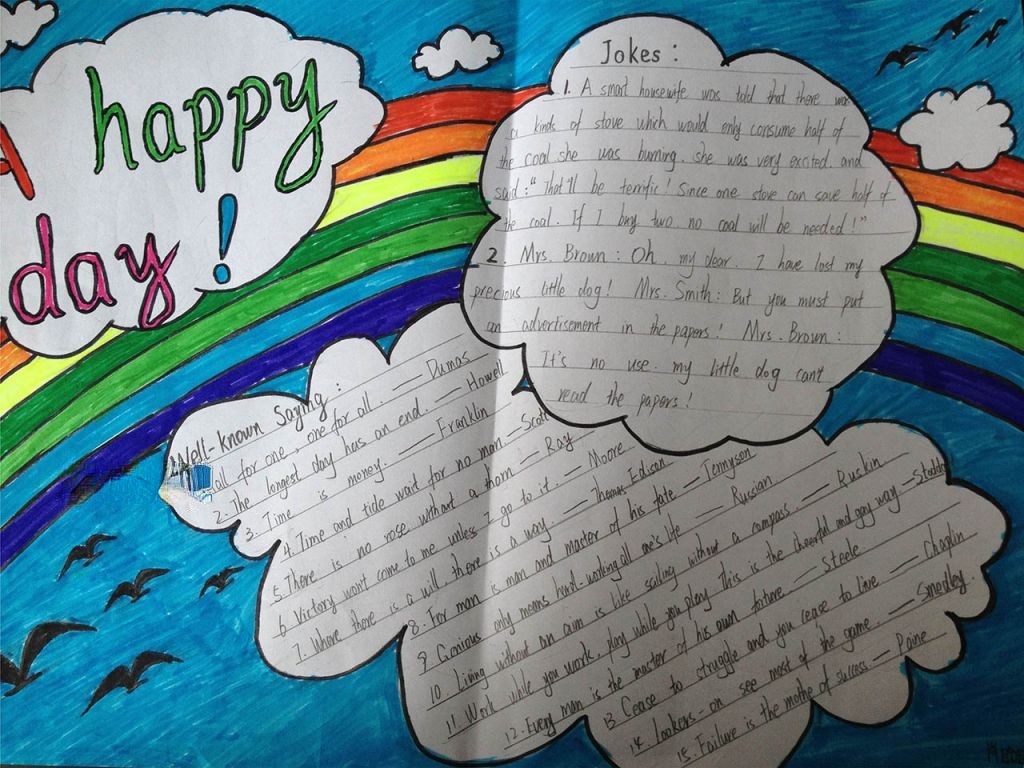 A happy
day!
Jokes:
1. A smart housewife was told that there was
a kinds of stove which would only consume half of
the coal she was burning. she was very excited. and
said: "That'll be terrific! Since one stove can save half of
the coal. If I buy two. no coal will be needed!"
2. Mrs. Brown: Oh. my dear. I have lost my
precious little dog! Mrs. Smith: But you must put
an advertisement in the papers! Mrs. Brown:
It's no use. my little dog can't
read the papers!
Well-known Saying:
all for one, one for all. — Dumas
2. The longest day has an end. — Howell
3. Time is money. — Franklin
4. Time and tide wait for no man. — Scott
5. There is no rose without a thorn! — Ray
6. Victory won't come to me unless I go to it. — Moore
7. Where there is a will there is a way. — Thomas Edison
8. For man is man and master of his fate — Tennyson
9. Genious only means hard-working all one's life — Russian
10. Living without an aim is like sailing without a compass. — Ruskin
11. Work while you work, play while you play This is the cheerful and gay way —
12. Every man is the master of his own future. — Steele
13. Cease to struggle and you cease to live. — Chaplin
14. Lookers-on see most of the game. — Smedley
15. Failure is the mothe of success — Paine